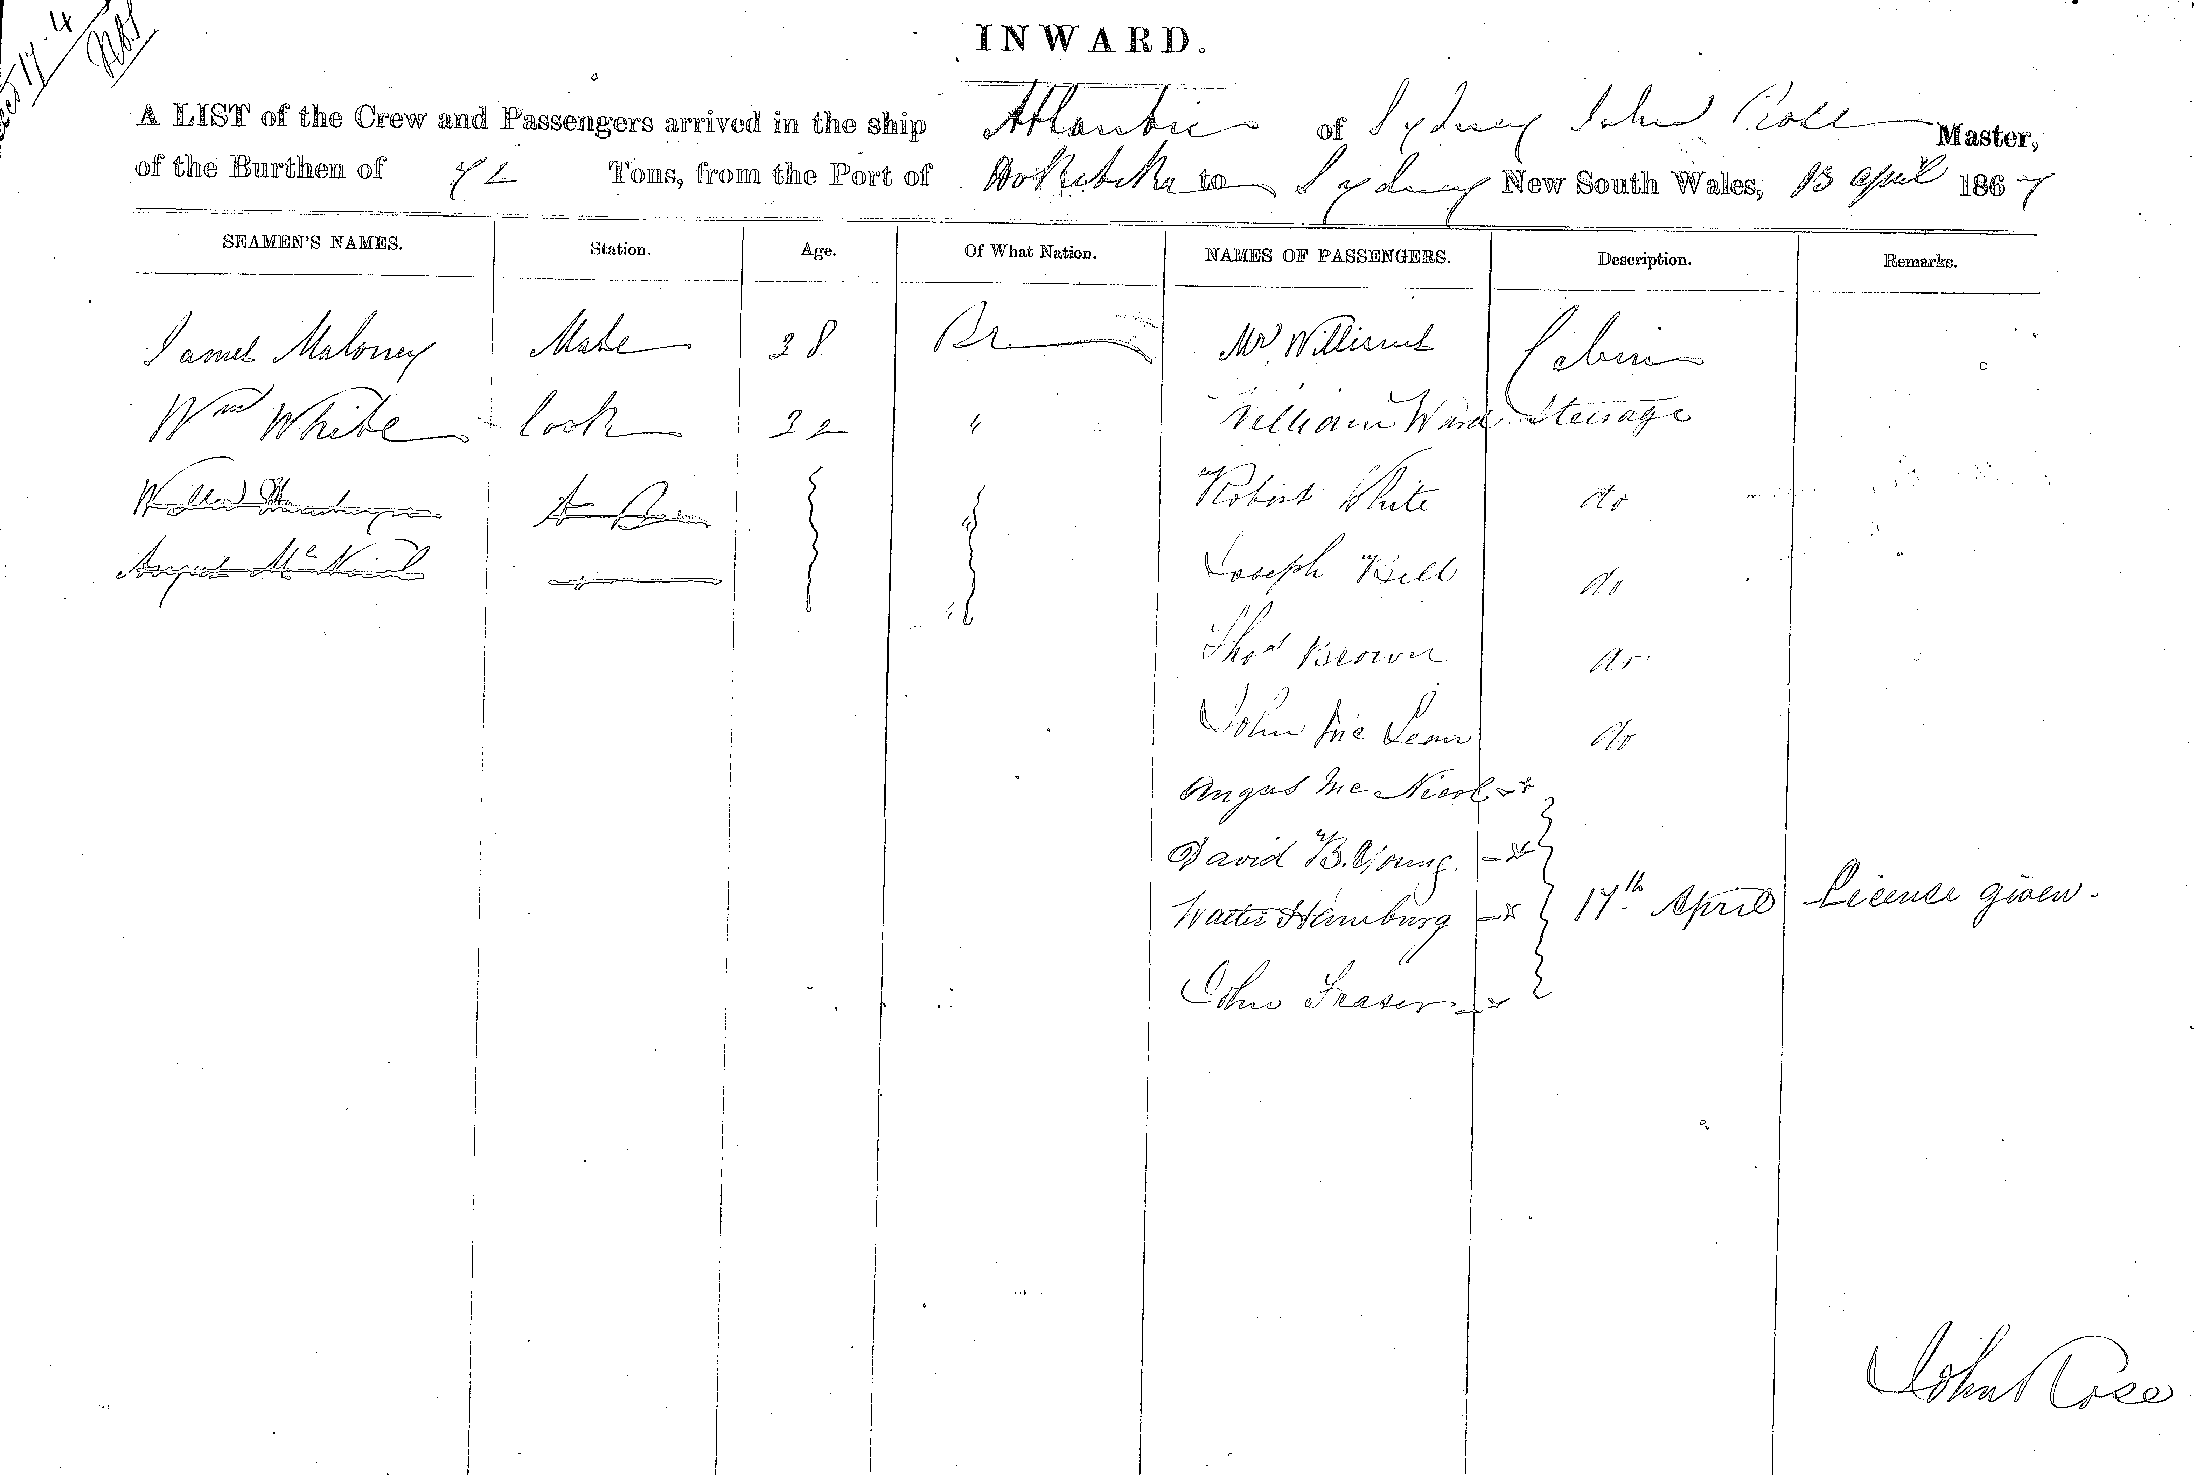 17.4
INWARD.
A LIST of the Crew and Passengers arrived in the ship Atlantic of Sydney John Rose Master,
of the Burthen of 72 Tons, from the Port of Hokitika to Sydney New South Wales, 13 april 1867
SEAMEN'S NAMES. Station. Age. Of What Nation. NAMES OF PASSENGERS. Description. Remarks.
James Maloney Mate 38 Br Mr Williams Cabin
Wm White Cook 32 " William Ward Steerage
Robert White do
Angus McNicol Joseph Bell do
Thos Brown do
John McLean do
Angus McNicol
David B. Young.
Walter Hemburg 17th April License given.
John Fraser
John Rose